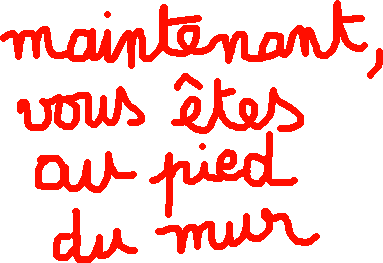 maintenant,
vous êtes
au pied
du mur